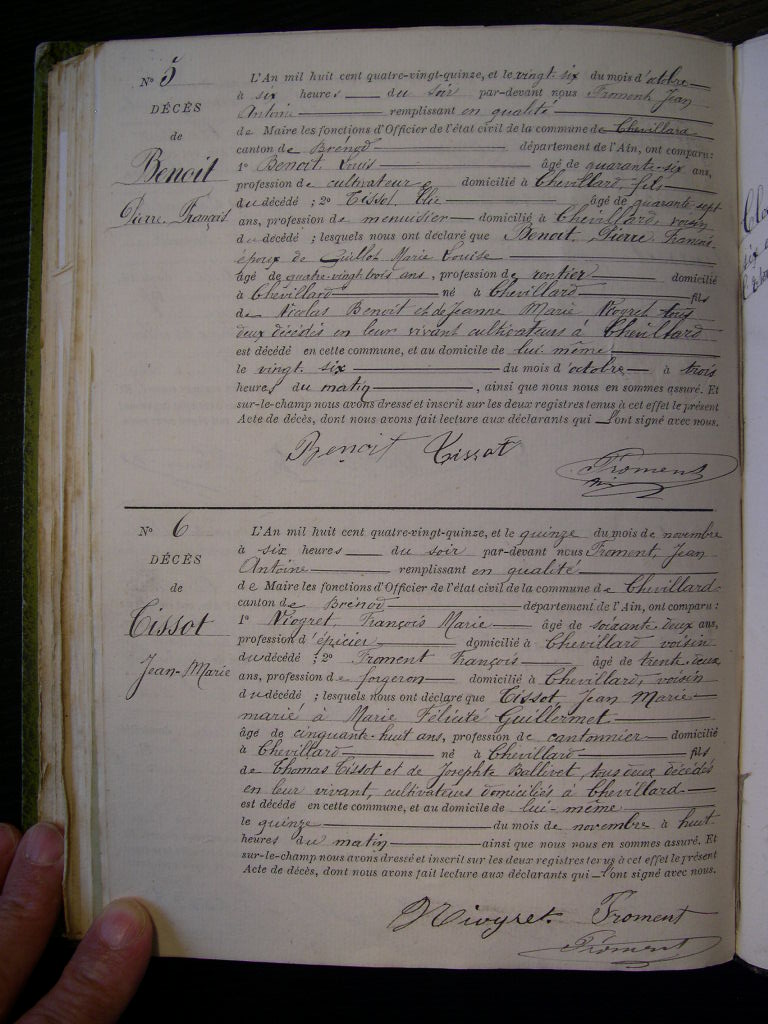 N° 5
DÉCÈS
de
Benoit
Pierre François
L'An mil huit cent quatre-vingt-quinze, et le vingt-six du mois d'octobre
à six heures du soir par-devant nous Froment, Jean
Antoine remplissant en qualité
de Maire les fonctions d'Officier de l'état civil de la commune de Chevillard
canton de Brénod département de l'Ain, ont comparu :
1° Benoit, Louis âgé de quarante-six ans,
profession de cultivateur domicilié à Chevillard, fils
du décédé ; 2° Tissot, Elie âgé de quarante sept
ans, profession de menuisier domicilié à Chevillard, voisin
du décédé ; lesquels nous ont déclaré que Benoit, Pierre François
époux de Guillot Marie Louise
âgé de quatre-vingt trois ans, profession de rentier domicilié
à Chevillard né à Chevillard fils
de Nicolas Benoit et de Jeanne Marie Nioyret tous
deux décédés en leur vivant cultivateurs à Chevillard
est décédé en cette commune, et au domicile de lui-même
le vingt six du mois d'octobre à trois
heures du matin, ainsi que nous nous en sommes assuré. Et
sur-le-champ nous avons dressé et inscrit sur les deux registres tenus à cet effet le présent
Acte de décès, dont nous avons fait lecture aux déclarants qui l'ont signé avec nous.
Benoit Tissot
Froment
N° 6
DÉCÈS
de
Tissot
Jean-Marie
L'An mil huit cent quatre-vingt-quinze, et le quinze du mois de novembre
à six heures du soir par-devant nous Froment, Jean
Antoine remplissant en qualité
de Maire les fonctions d'Officier de l'état civil de la commune de Chevillard
canton de Brénod département de l'Ain, ont comparu :
1° Nioyret, François Marie âgé de soixante deux ans,
profession d'épicier domicilié à Chevillard voisin
du décédé ; 2° Froment François âgé de trente deux
ans, profession de forgeron domicilié à Chevillard, voisin
du décédé ; lesquels nous ont déclaré que Tissot, Jean Marie
marié à Marie Félicité Guillermet
âgé de cinquante-huit ans, profession de cantonnier domicilié
à Chevillard né à Chevillard fils
de Thomas Tissot et de Josephte Ballivet, tous deux décédés
en leur vivant, cultivateurs domiciliés à Chevillard
est décédé en cette commune, et au domicile de lui-même
le quinze du mois de novembre à huit
heures du matin ainsi que nous nous en sommes assuré. Et
sur-le-champ nous avons dressé et inscrit sur les deux registres tenus à cet effet le présent
Acte de décès, dont nous avons fait lecture aux déclarants qui l'ont signé avec nous.
Nioyret Froment
Froment